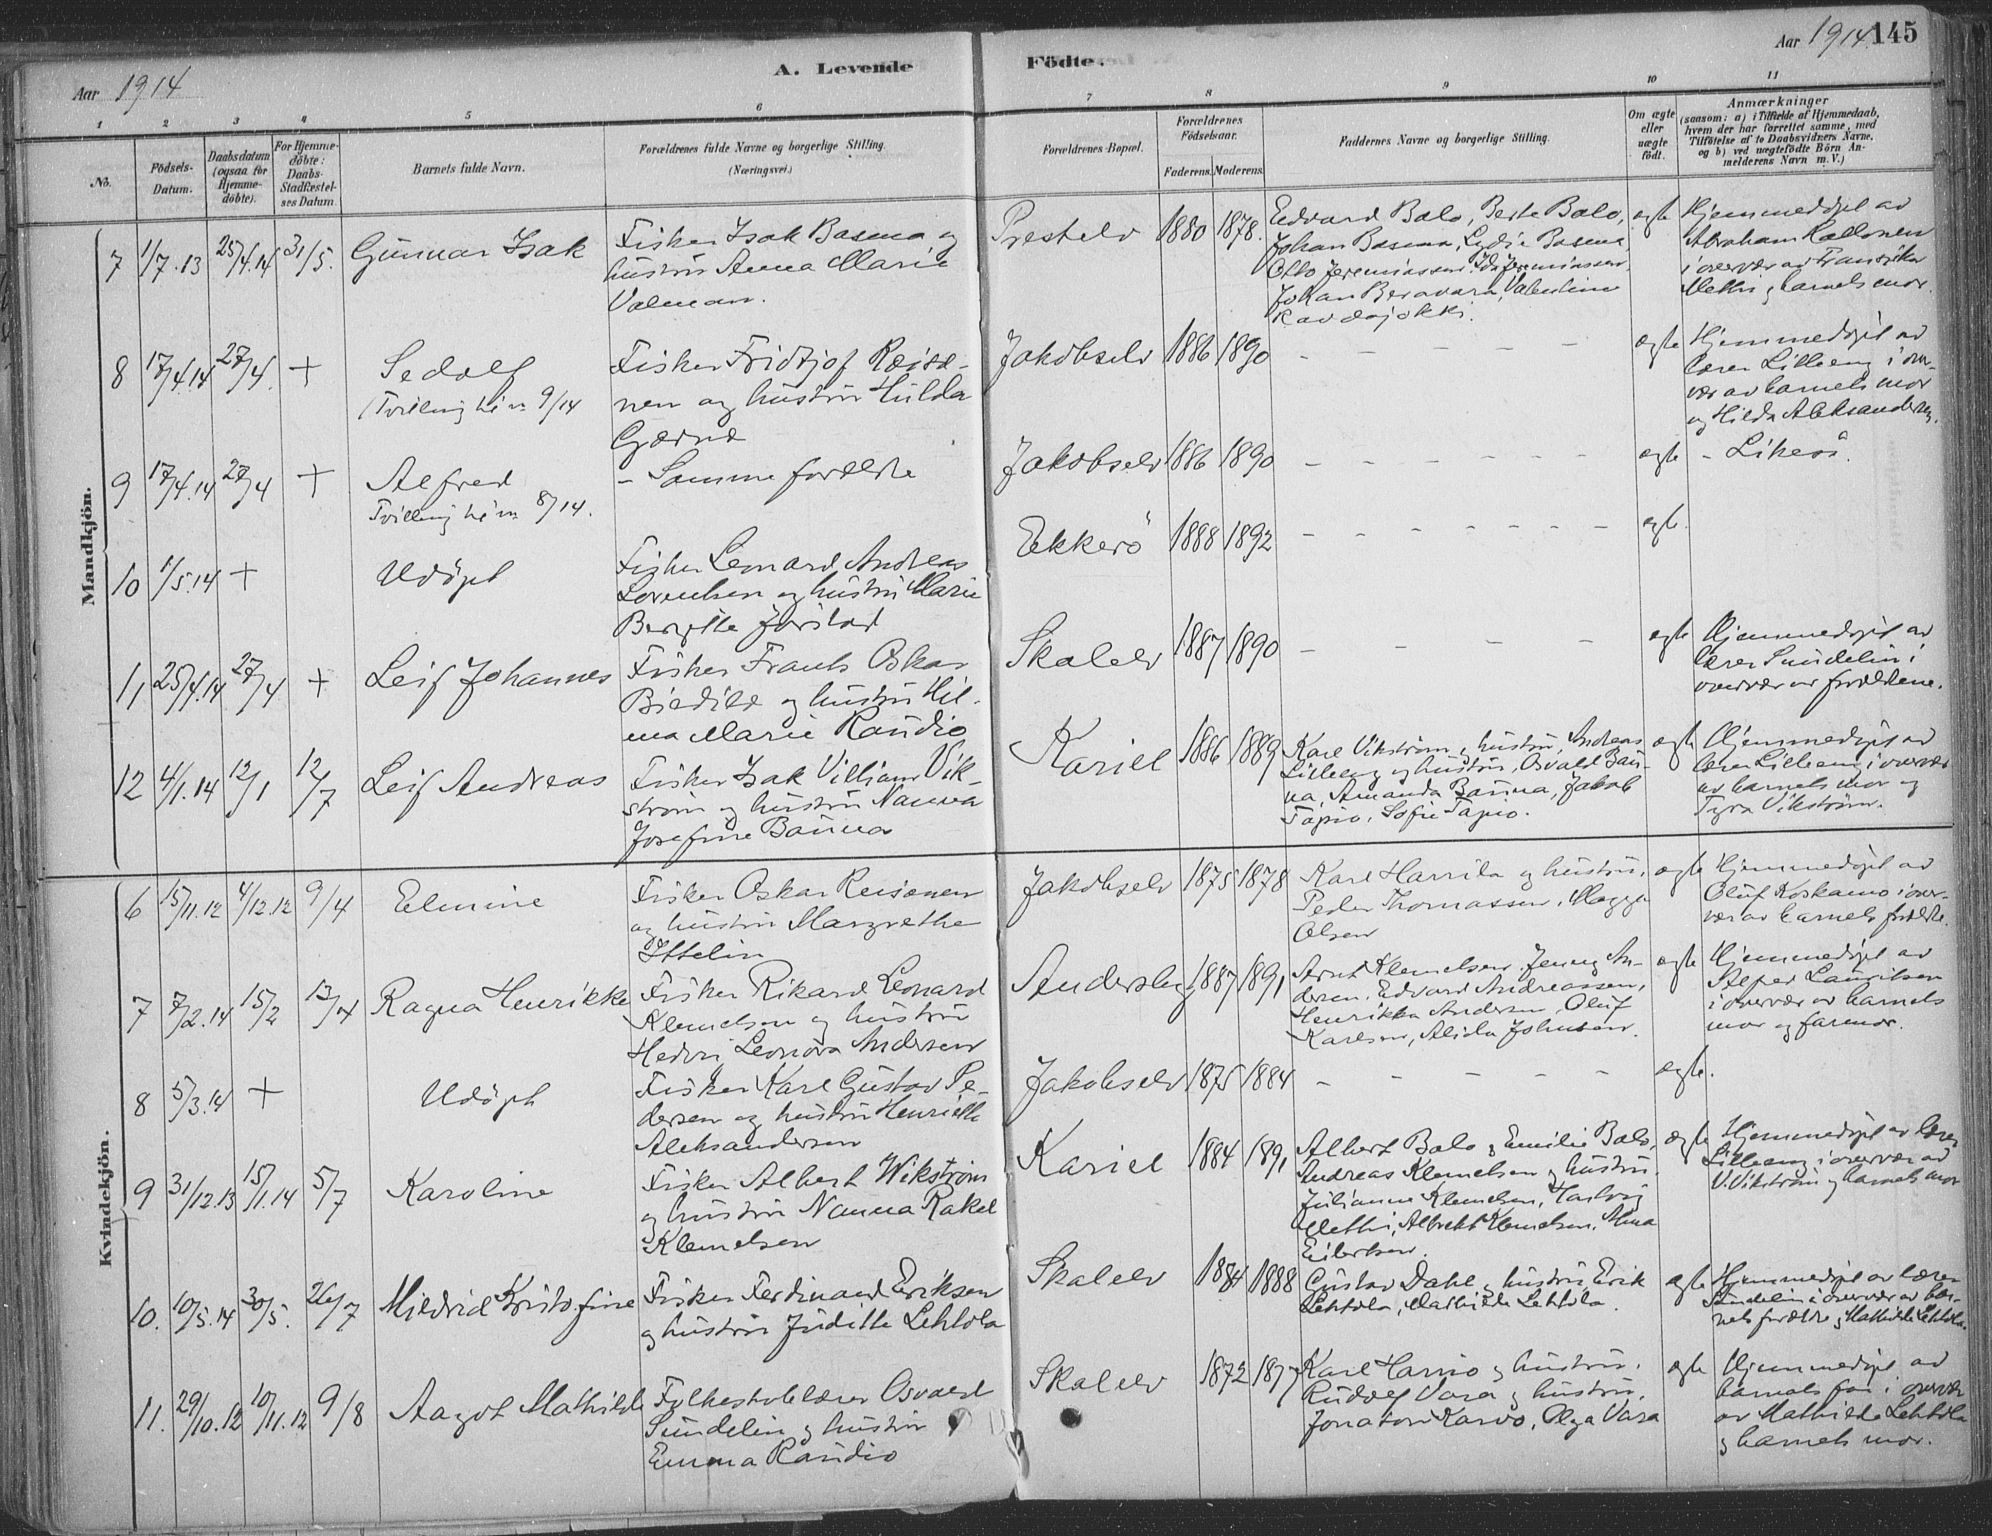 Aar 1914
A. Levende Födte.
Aar 1914. 145
1 2 3 4 5 6 7 8 9 10 11
No.
Födsels-
Datum.
Daabsdatum
(ogsaa for
Hjemme-
döbte).
For Hjemme-
döbte:
Daabs-
Stadfæstel-
ses Datum.
Barnets fulde Navn.
Forældrenes fulde Navne og borgerlige Stilling.
(Næringsvei.)
Forældrenes Bopæl.
Forældrenes
Födselsaar.
Faderens. Moderens.
Faddernes Navne og borgerlige Stilling.
Om ægte
eller
uægte
födt.
Anmærkninger
(saasom: a) i Tilfælde af Hjemmedaab,
hvem der har forrettet samme, med
Tilföielse af to Daabsvidners Navne,
og b) ved uægtefödte Börn An-
melderens Navn m. V.)
Mandkjön.
7 1/7.13 25/4.14 31/5. Gunnar Isak
Fisker Isak Basma og
hustru Anna Marie
Valman.
Prestelv 1880 1878.
Edvard Balo, Berte Balo,
Johan Basma, Lydie Basma
Otto Jeremiassen, Ida Jeremiassen,
Johan Beravara, Valentine
ægte
Hjemmedöpt av
Abraham Kallonen
i overvær av
barnets mor.
8 17/4.14 27/4. +
Sedolf
(Tvilling til n. 9/14
Fisker Fridtjof Reisa-
nen og hustru Hulda
Jakobselv 1886 1890 - - - - - -
ægte
Hjemmedöpt av
lærer Lilleeng i over-
vær av barnets mor
og Hilda Aleksandersen.
9 17/4.14 27/4 +
Alfred
Tvilling til n. 8/14.
- Samme forældre
Jakobselv 1886 1890 - - - - - -
ægte - Likeså.
10 1/5.14 + Udöpt
Fisker Leonard Andreas
Lorentsen og hustru Marie
Bergitte Jörstad
Ekkerö 1888 1892 - - - - - -
ægte.
11 25/4.14 27/4 + Leif Johannes
Fisker Frants Oskar
og hustru Hil-
ma Marie Raudio
Skalelv 1887 1890 - - - - -
ægte
Hjemmedöpt av
lærer Sundelin i
overvær av forældrene.
12 4/1.14 12/1 12/7 Leif Andreas
Fisker Isak Villiam Vik-
ström og hustru Nanna
Josefine Bauna
Kariel 1886 1889
Karl Vikström og hustru, Andreas
Lilleeng og hustru, Osvald Bau-
na, Amanda Bauna, Jakob
Tapio, Sofie Tapio.
ægte
Hjemmedöpt av
lærer Lilleeng i overvær
av barnets mor og
Tyra Vikström.
Kvindekjön.
6 15/11.12 4/12.12 9/4 Elmine
Fisker Oskar Reisænen
og hustru Margrethe
Ittelin
Jakobselv 1875 1878
Karl Harrila og hustru,
Peder Thomassen, Magga
Olsen
ægte
Hjemmedöpt av
Oluf Koskamo i over-
vær av barnets forældre.
7 7/2.14 15/2 13/4 Ragna Henrikke
Fisker Rikard Leonard
Klemetsen og hustru
Hedvig Leonora Andersen
Andersby 1887 1891
Arnt Klemetsen, Jenny An-
dersen, Edvard Andreassen,
Henrikka Andersen, Oluf
Karlsen, Alida Johnsen.
ægte
Hjemmedöpt av
Alfred Lauritsen
i overvær av barnets
mor og farmor.
8 5/3.14 + Udöpt
Fisker Karl Gustav Pe-
dersen og hustru Henriette
Aleksandersen
Jakobselv 1875 1884 - - - - - -
ægte.
9 31/12.13 15/1.14 5/7 Karoline
Fisker Albert Wikström
og hustru Nanna Rakel
Klemetsen
Kariel 1884 1891
Albert Balo og Emilie Balo,
Andreas Klemetsen og hustru,
Julianne Klemetsen, Hartvig
Methi, Albrekt Klemetsen, Alma
Eilertsen.
ægte
Hjemmedöpt av lærer
Lilleeng i overvær av
V. Vikström og barnets mor
10. 10/5.14 30/5. 26/7 Mildrid Kristofine
Fisker Ferdinand Eriksen
og hustru Juditte Lehtola
Skalelv 1884 1888
Gustav Dahl og hustru, Erik
Lehtola, Mathilde Lehtola.
ægte
Hjemmedöpt av lærer
Sundelin i overvær av bar-
nets forældre og Mathilde Lehtola.
11. 29/10.12 10/11.12 9/8 Aagot Mathilde
Folkeskolelærer Osvald
Sundelin og hustru
Emma Raudio
Skalelv 1872 1877
Karl Harnio og hustru,
Rudolf Vara og hustru,
Jonatan Karvo, Olga Vara
ægte
Hjemmedöpt av
barnets far i overvær
av Mathilde Lehtola
og barnets mor.